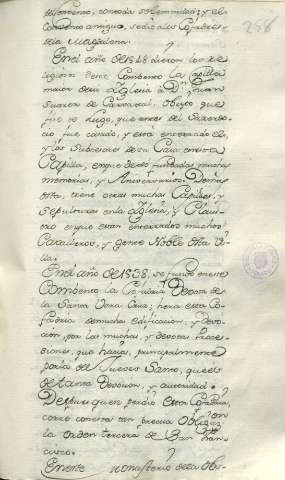 258
Convento antiguo, se dio a los Cofrades
dela Magdalena.
En el año de 1548 dieron los re-
ligiosos deste Combento la Capilla
mayor de su Iglesia à Dn. Juan
Suarez de Carvajal, Obispo que
fue de Lugo, que antes del Sacerdo-
cio fue casado, y esta enterrado el,
y los Subcesores de su Casa en esta
Capilla, en que dexò fundadas muchas
memorias, y Aniversarios. Demas
desta, tiene otras muchas Capillas, y
Sepulturas en la Iglesia, y Claus-
tro en que estan enterrados muchos
Cavalleros, y gente Noble desta Vi-
lla.
En el año de 1538, se fundò en este
Combento la Cofradia Devota de
la Santa Vera Cruz; hera esta Co-
fadria de mucha edificacion, y devo-
cion, por las muchas, y devotas Proce-
siones, que hacia, principalmente
para el Jueves Santo, que es
de tanta Devocion, y autoridad.
Despues que se perdio esta Cofadria,
corriò con esta tan precisa Obligacion
la orden tercera de San Fran-
cisco.
En este Monasterio dela Obs-